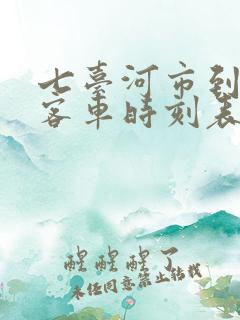 七臺河市到
客車時刻表
醒醒醒了
未经同意禁止转载